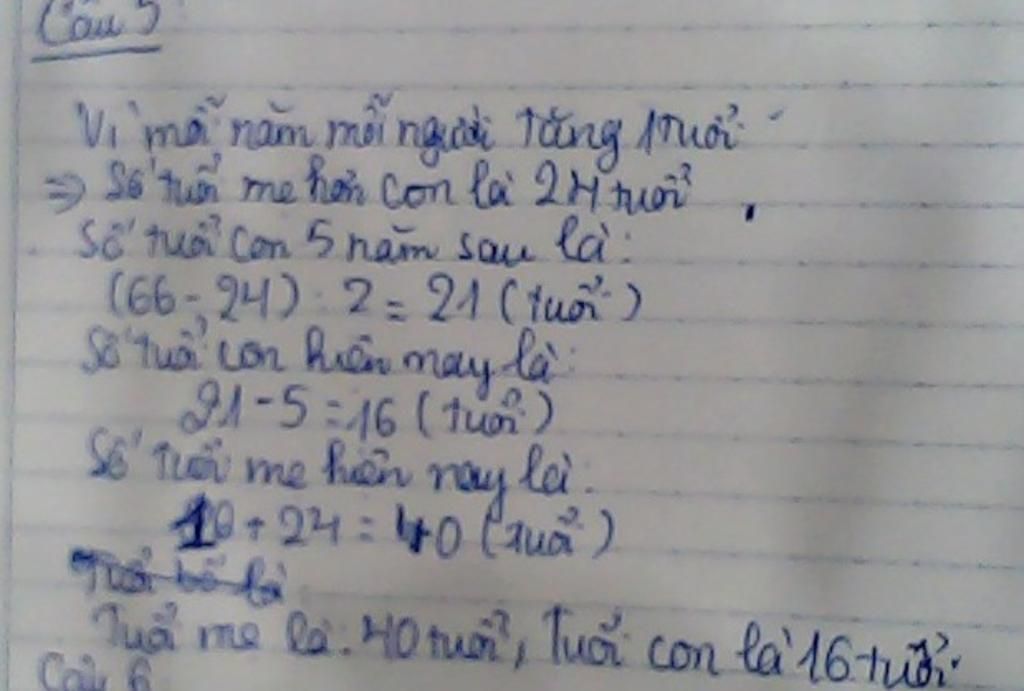 Câu 5
Vì mỗi năm mỗi người tăng 1 tuổi
=> Số tuổi mẹ hơn con là 24 tuổi
Số tuổi con 5 năm sau là:
(66 - 24) : 2 = 21 (tuổi)
Số tuổi con hiện nay là:
21 - 5 = 16 (tuổi)
Số tuổi mẹ hiện nay là:
16 + 24 = 40 (tuổi)
Tuổi bố là
Tuổi mẹ là: 40 tuổi, Tuổi con là 16 tuổi.
Câu 6